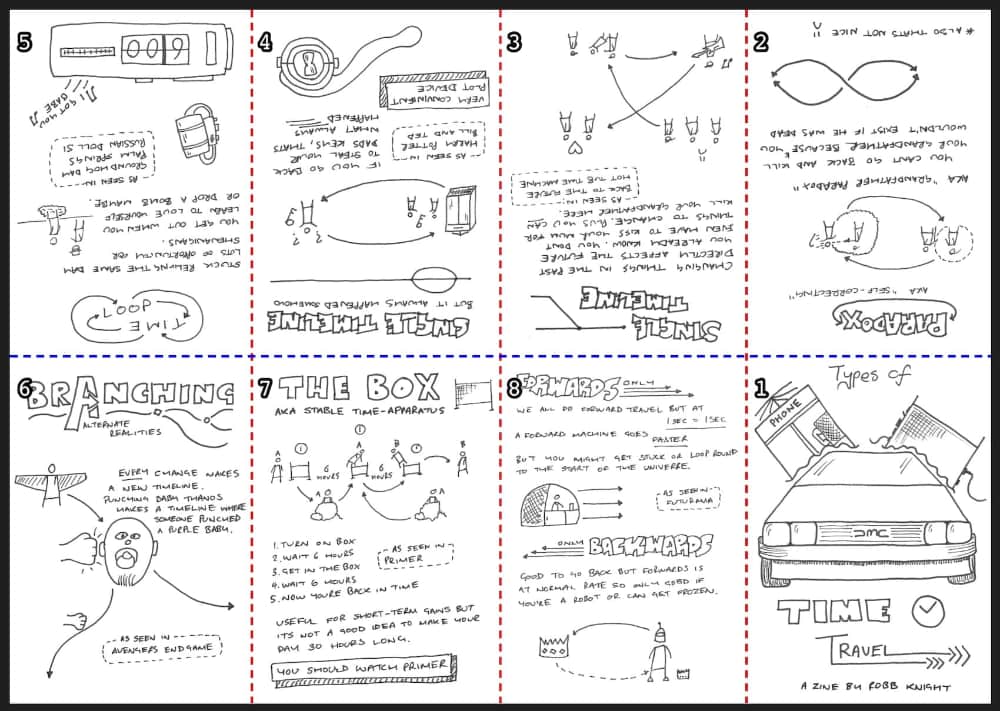 1
Types of
PHONE
DMC
TIME
TRAVEL
A ZINE BY ROBB KNIGHT
2
PARADOX
AKA "SELF-CORRECTING"
AKA "GRANDFATHER PARADOX"
YOU CANT GO BACK AND KILL
YOUR GRANDFATHER BECAUSE YOU
WOULDN'T EXIST IF HE WAS DEAD
* ALSO THATS NOT NICE
3
SINGLE
TIMELINE
CHANGING THINGS IN THE PAST
DIRECTLY AFFECTS THE FUTURE
YOU ALREADY KNOW. YOU DONT
EVEN HAVE TO KISS YOUR MUM FOR
THINGS TO CHANGE. PLUS YOU CAN
KILL YOUR GRANDFATHER HERE.
AS SEEN IN:
BACK TO THE FUTURE
HOT TUB TIME MACHINE
4
SINGLE TIMELINE
BUT IT ALWAYS HAPPENED SOMEHOW
IF YOU GO BACK
TO STEAL YOUR
DADS KEYS, THATS
WHAT ALWAYS
HAPPENED
AS SEEN IN
HARRY POTTER
BILL AND TED
VERY CONVENIENT
PLOT DEVICE
5
TIME
LOOP
STUCK RELIVING THE SAME DAY
LOTS OF OPPORTUNITY FOR
SHENANIGANS.
YOU GET OUT WHEN YOU
LEARN TO LOVE YOURSELF
OR DROP A BOMB MAYBE.
AS SEEN IN
GROUNDHOG DAY
PALM SPRINGS
RUSSIAN DOLL S1
I GOT YOU
BABE
009
6
BRANCHING
ALTERNATE
REALITIES
EVERY CHANGE MAKES
A NEW TIMELINE.
PUNCHING BABY THANOS
MAKES A TIMELINE WHERE
SOMEONE PUNCHED
A PURPLE BABY.
AS SEEN IN
AVENGERS ENDGAME
7
THE BOX
AKA STABLE TIME-APPARATUS
A
1
6
HOURS
1
A
B
6
HOURS
B
A
A
1. TURN ON BOX
2. WAIT 6 HOURS
3. GET IN THE BOX
4. WAIT 6 HOURS
5. NOW YOU'RE BACK IN TIME
AS SEEN IN
PRIMER
USEFUL FOR SHORT-TERM GAINS BUT
ITS NOT A GOOD IDEA TO MAKE YOUR
DAY 30 HOURS LONG.
YOU SHOULD WATCH PRIMER
8
FORWARDS ONLY
WE ALL DO FORWARD TRAVEL BUT AT
1 SEC = 1 SEC
A FORWARD MACHINE GOES FASTER
BUT YOU MIGHT GET STUCK OR LOOP ROUND
TO THE START OF THE UNIVERSE.
AS SEEN IN
FUTURAMA
ONLY BACKWARDS
GOOD TO GO BACK BUT FORWARDS IS
AT NORMAL RATE SO ONLY GOOD IF
YOU'RE A ROBOT OR CAN GET FROZEN.